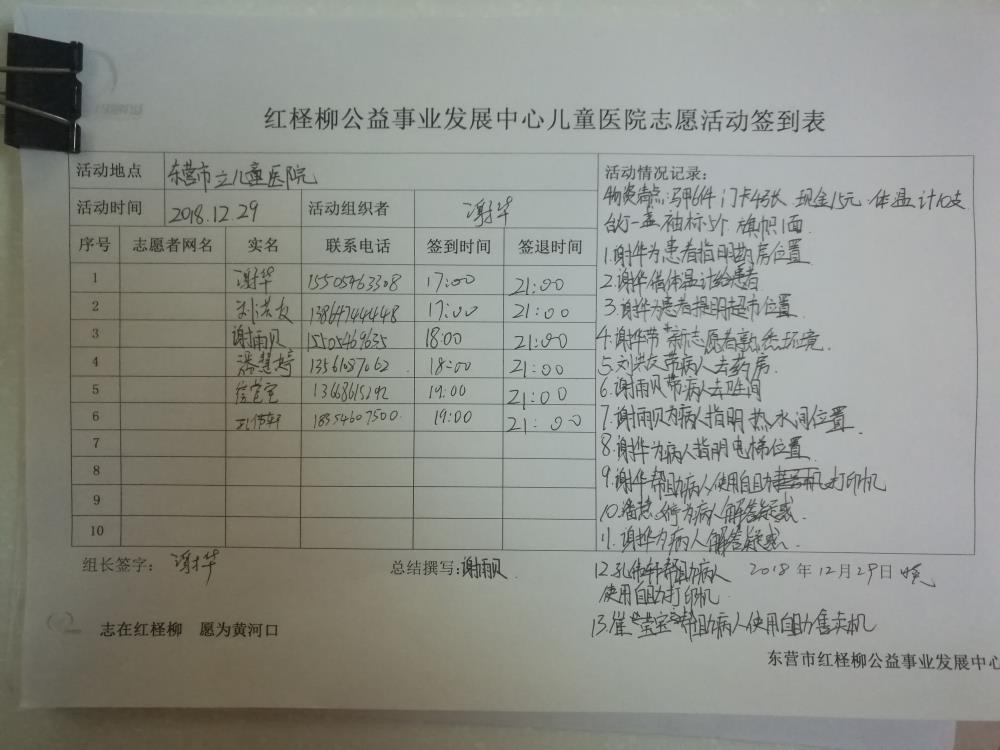 红柽柳公益事业发展中心儿童医院志愿活动签到表
活动地点 东营市立儿童医院
活动时间 2018.12.29 活动组织者 谢华
序号 志愿者网名 实名 联系电话 签到时间 签退时间
1 谢华 15505463308 17:00 21:00
2 刘洪友 13864744448 17:00 21:00
3 谢雨贝 15505469635 18:00 21:00
4 潘慧婷 13561087062 18:00 21:00
5 莹宝 13668615192 19:00 21:00
6 孔伟轩 18354607500 19:00 21:00
7
8
9
10
活动情况记录:
物资清点:马甲6件 门卡43张 现金15元 体温计10支
台灯一盏 袖标5个 旗帜1面
1.谢华为患者指明药房位置
2.谢华借体温计给患者
3.谢华为患者提明超市位置
4.谢华带新志愿者熟悉环境.
5.刘洪友带病人去药房.
6.谢雨贝带病人去卫生间
7.谢雨贝为病人指明热水间位置
8.谢华为病人指明电梯位置
9.谢华帮助病人使用自助打印机
10.潘慧婷为病人解答疑惑.
11.谢华为病人解答疑惑.
12.孔伟轩帮助病人
使用自助打印机
13.崔莹宝帮助病人使用自助售卖机
组长签字: 谢华 总结撰写:谢雨贝 2018年12月29日 晚
志在红柽柳 愿为黄河口
东营市红柽柳公益事业发展中心